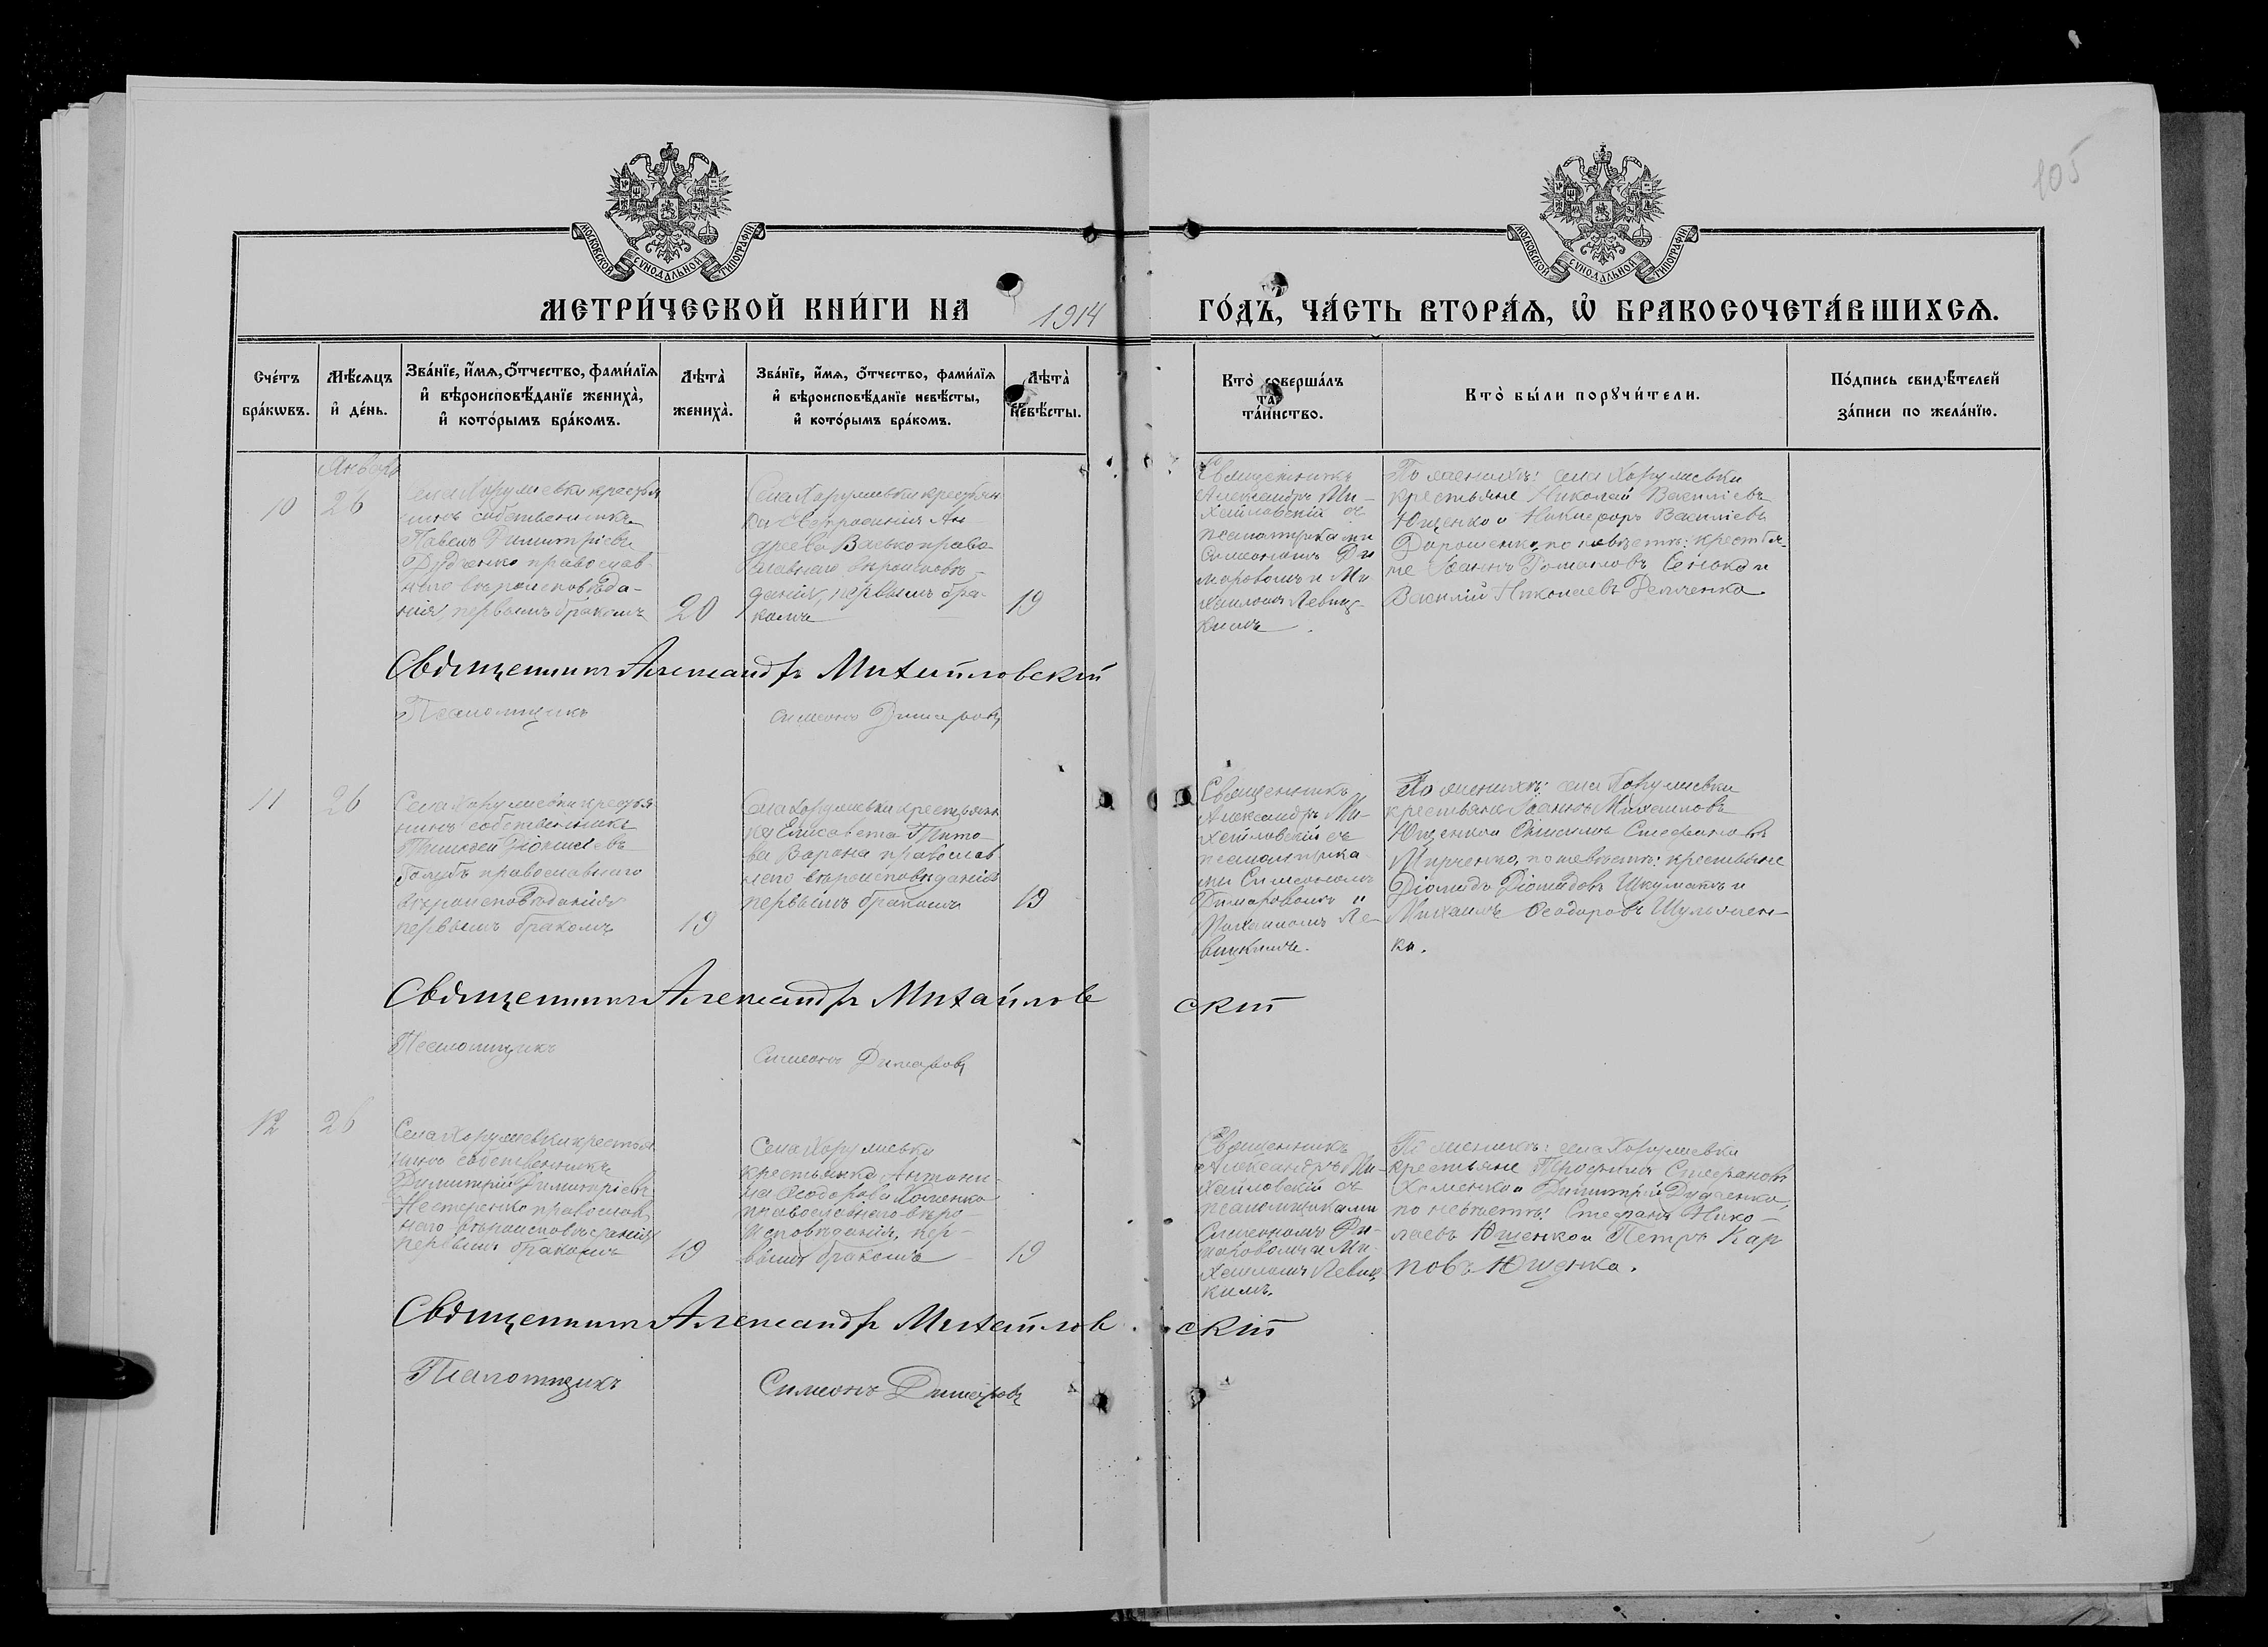 105
МОСКОВСКОЙ СѴНОДАЛЬНОЙ ТИПОГРАФІИ
МОСКОВСКОЙ СѴНОДАЛЬНОЙ ТИПОГРАФІИ
МЕТРИ́ЧЕСКОЙ КНИ́ГИ НА 1914 ГО́ДЪ, ЧА́СТЬ ВТОРА́Ѧ, Ѽ БРАКОСОЧЕТА́ВШИХСѦ.
Сче́тъ бра́кѡвъ.
Мѣ́сѧцъ и҆ де́нь.
Зва́нїе, и҆́мѧ, ѻ҆́тчество, фами́лїѧ
и҆ вѣроисповѣ́данїе жениха̀,
и҆ кото́рымъ бра́комъ.
Лѣта̀ жениха̀.
Зва́нїе, и҆́мѧ, ѻ҆́тчество, фами́лїѧ
и҆ вѣроисповѣ́данїе невѣ́сты,
и҆ кото́рымъ бра́комъ.
Лѣта̀ невѣ́сты.
Кто̀ соверша́лъ
та́инство.
Кто̀ бы́ли порꙋчи́тели.
По́дпись свидѣ́телей
за́писи по жела́нїю.
10
Января
26
Села Хорушевки крестья
нинъ собственникъ
Павелъ Димитріевъ
Дудченко православ
наго вѣроисповѣда-
нія, первымъ бракомъ
20
Села Хорушевки крестьян
ка Евфросинія Ан
дреева Васько право
славнаго вѣроисповѣ-
данія, первымъ бра-
комъ
19
Священникъ
Александръ Ми-
хайловскій съ
псаломщиками
Симеономъ Ди
маровымъ и Ми
хаиломъ Левиц-
кимъ.
По женихѣ: села Хорушевки
крестьяне Николай Василіевъ
Ющенко и Никифоръ Василіевъ
Дорошенко, по невѣстѣ: крестья-
не Іоаннъ Романовъ и
Василій Николаевъ
Священникъ Александръ Михайловскій
Псаломщикъ Симеонъ Димаровъ
11
26
Села Хорушевки крестья
нинъ собственникъ
Голубъ православнаго
вѣроисповѣданія
первымъ бракомъ
19
Села Хорушевки крестьян
ка Елисавета Тито-
ва Ворона православ
наго вѣроисповѣданія
первымъ бракомъ
19
Священникъ
Александръ Ми-
хайловскій съ
псаломщика
ми Симеономъ
Димаровымъ и
Михаиломъ Ле-
вицкимъ.
По женихѣ: села Хорушевки
крестьяне Іоаннъ Михаиловъ
Ющенко и Стефановъ
Мирченко, по невѣстѣ: крестьяне
Діомидъ Діомидовъ Шкуматъ и
Михаилъ Ѳеодоровъ Шульжен-
ко.
Священникъ Александръ Михайловскій
Псаломщикъ Симеонъ Димаровъ
12
26
Села Хорушевки крестья
нинъ собственникъ
Димитрій Димитріевъ
Нестеренко православ
наго вѣроисповѣданія
первымъ бракомъ
19
Села Хорушевки
крестьянка Антони-
на Ѳеодорова Хоменко
православнаго вѣро-
исповѣданія, пер-
вымъ бракомъ
19
Священникъ
Александръ Ми-
хайловскій съ
псаломщиками
Симеономъ Ди-
маровымъ и Ми-
хаиломъ Левиц
кимъ.
По женихѣ: села Хорушевки
крестьяне Трофимъ Стефановъ
Хоменко и Димитрій Дудченко,
по невѣстѣ: Стефанъ Нико-
лаевъ Ющенко и Петръ Кар
повъ Ющенко.
Священникъ Александръ Михайловскій
Псаломщикъ Симеонъ Димаровъ